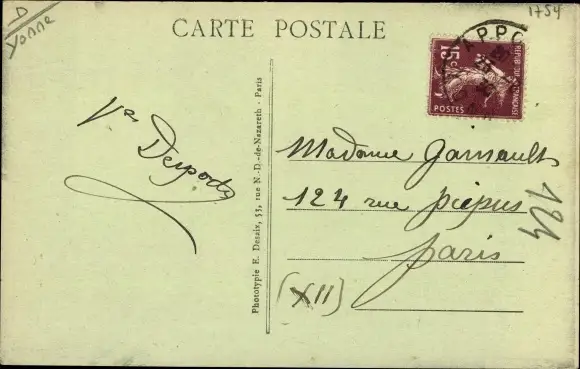 D
Yonne
1754
CARTE POSTALE
APPO
RÉPUB
FRANÇAISE
15c
POSTES
Vve Desportes
Madame Garnault
124 rue picpus
paris
(XII)
124
Phototypie E. Desaix, 53, rue N.-D.-de-Nazareth - Paris